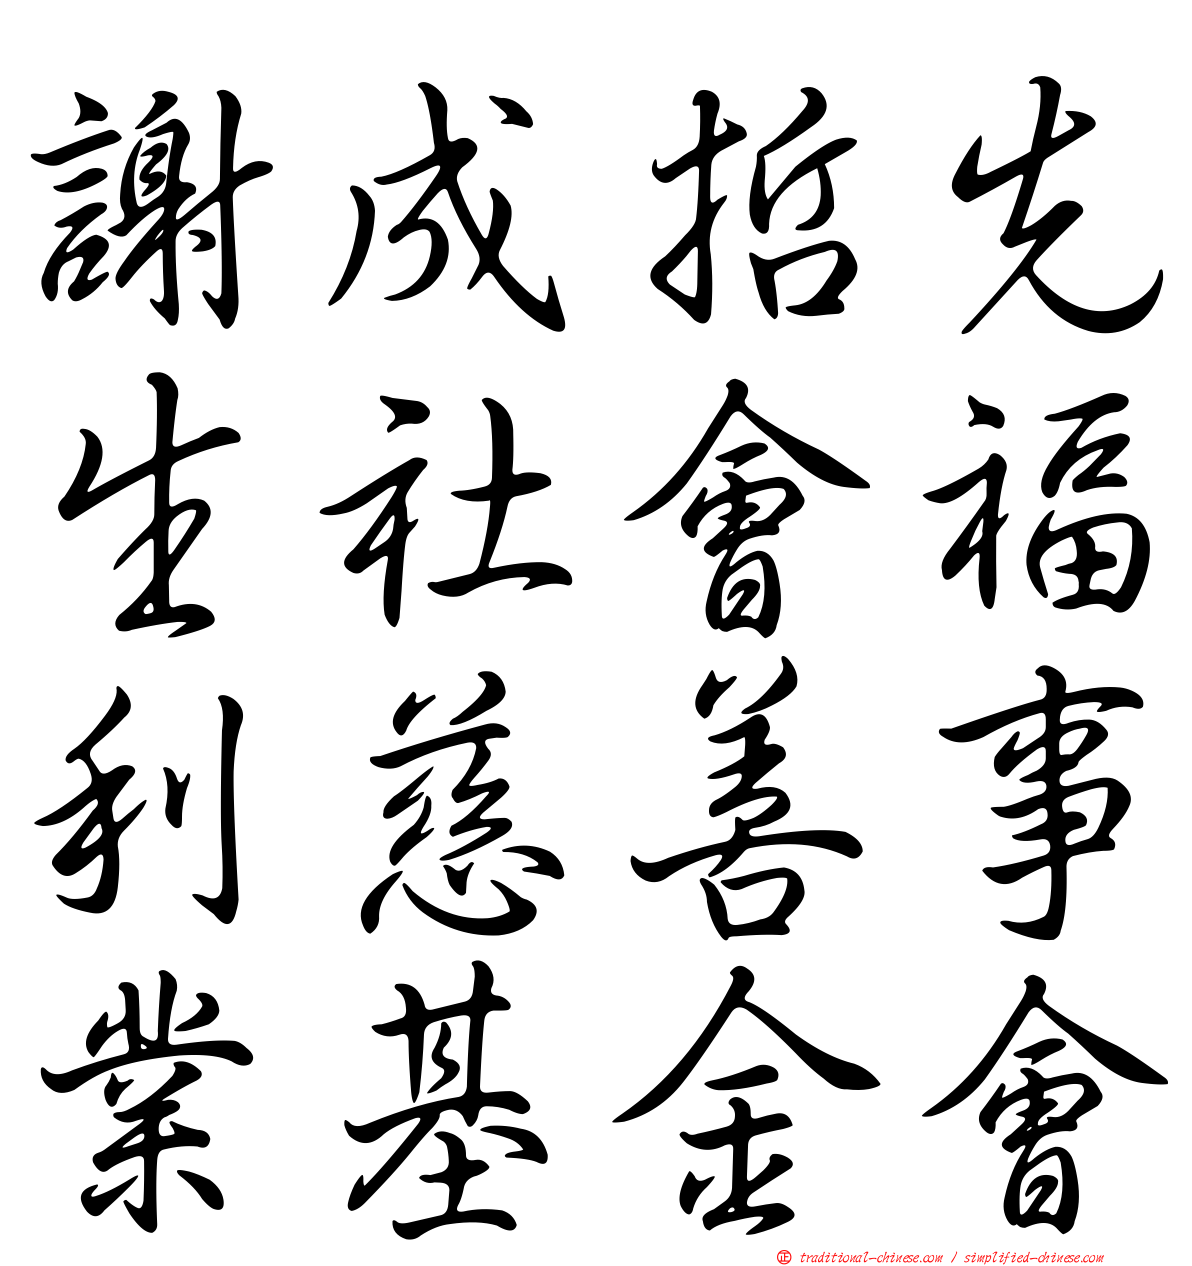 謝成哲先
生社會福
利慈善事
業基金會
正 traditional-chinese.com / simplified-chinese.com